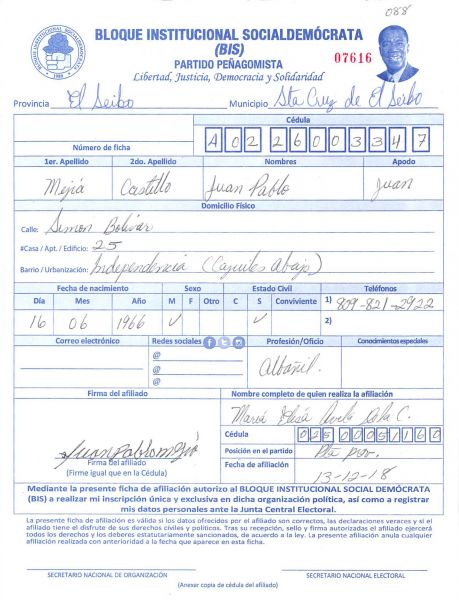 088
BLOQUE INSTITUCIONAL SOCIALDEMÓCRATA
(BIS)
07616
PARTIDO PEÑAGOMISTA
Libertad, Justicia, Democracia y Solidaridad
Provincia El Seibo Municipio Sta Cruz de El Seibo
Cédula
Número de ficha A0226003347
1er. Apellido 2do. Apellido Nombres Apodo
Mejia Castillo Juan Pablo Juan
Domicilio Físico
Calle: Simon Bolívar
#Casa / Apt. / Edificio: 25
Barrio / Urbanización: Independencia ( Abajo)
Fecha de nacimiento Sexo Estado Civil Teléfonos
Día Mes Año M F Otro C S Conviviente 1) 809-821-2922
16 06 1966 ✓ ✓ 2)
Correo electrónico Redes sociales Profesión/Oficio Conocimientos especiales
@
@ Albañil.
@
Firma del afiliado Nombre completo de quien realiza la afiliación
Maria C.
Cédula 02500051160
Juan Pablo Mejia Posición en el partido
Firma del afiliado
(Firme igual que en la Cédula) Fecha de afiliación 13-12-18
Mediante la presente ficha de afiliación autorizo al BLOQUE INSTITUCIONAL SOCIAL DEMÓCRATA
(BIS) a realizar mi inscripción única y exclusiva en dicha organización política, así como a registrar
mis datos personales ante la Junta Central Electoral.
La presente ficha de afiliación es válida si los datos ofrecidos por el afiliado son correctos, las declaraciones veraces y si el
afiliado tiene el disfrute de sus derechos civiles y políticos. Tras su recepción, sello y firma autorizadas el afiliado ejercerá
todos los derechos y los deberes estatutariamente sancionados, de acuerdo a la ley. La presente afiliación anula cualquier
afiliación realizada con anterioridad a la fecha que aparece en esta ficha.
SECRETARIO NACIONAL DE ORGANIZACIÓN SECRETARIO NACIONAL ELECTORAL
(Anexar copia de cédula del afiliado)